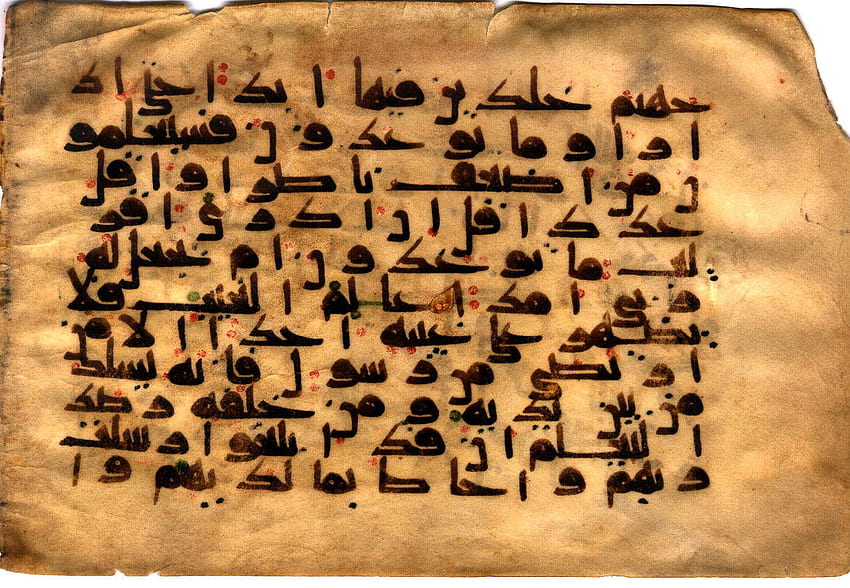 جهنم خلدين فيها ابدا حتى اذ
ا راوا ما يوعدون فسيعلمو
ن من اضعف ناصرا واقل
عددا قل ان ادري اقر
يب ما توعدون ام يجعل له
ربي امدا عالم الغيب فلا
يظهر على غيبه احدا الا من
ارتضى من رسول فانه يسلك
من بين يديه ومن خلفه رصد
ا ليعلم ان قد ابلغوا رسلت
ربهم واحاط بما لديهم وا